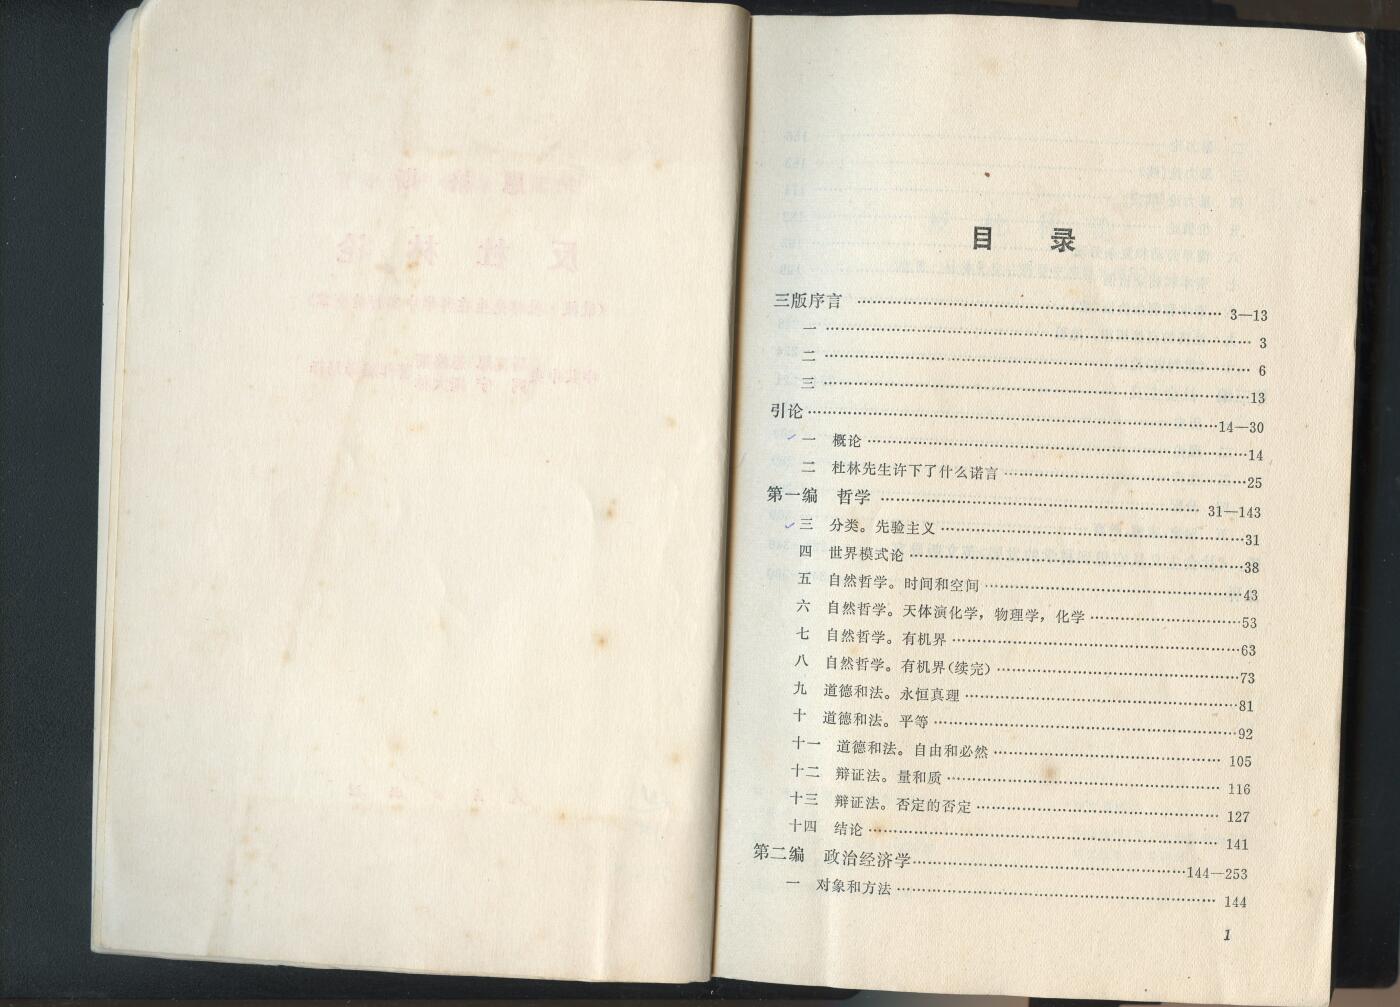 目 录
三版序言 …… 3—13
一 …… 3
二 …… 6
三 …… 13
引论 …… 14—30
一 概论 …… 14
二 杜林先生许下了什么诺言 …… 25
第一编 哲学 …… 31—143
三 分类。先验主义 …… 31
四 世界模式论 …… 38
五 自然哲学。时间和空间 …… 43
六 自然哲学。天体演化学，物理学，化学 …… 53
七 自然哲学。有机界 …… 63
八 自然哲学。有机界(续完) …… 73
九 道德和法。永恒真理 …… 81
十 道德和法。平等 …… 92
十一 道德和法。自由和必然 …… 105
十二 辩证法。量和质 …… 116
十三 辩证法。否定的否定 …… 127
十四 结论 …… 141
第二编 政治经济学 …… 144—253
一 对象和方法 …… 144
1